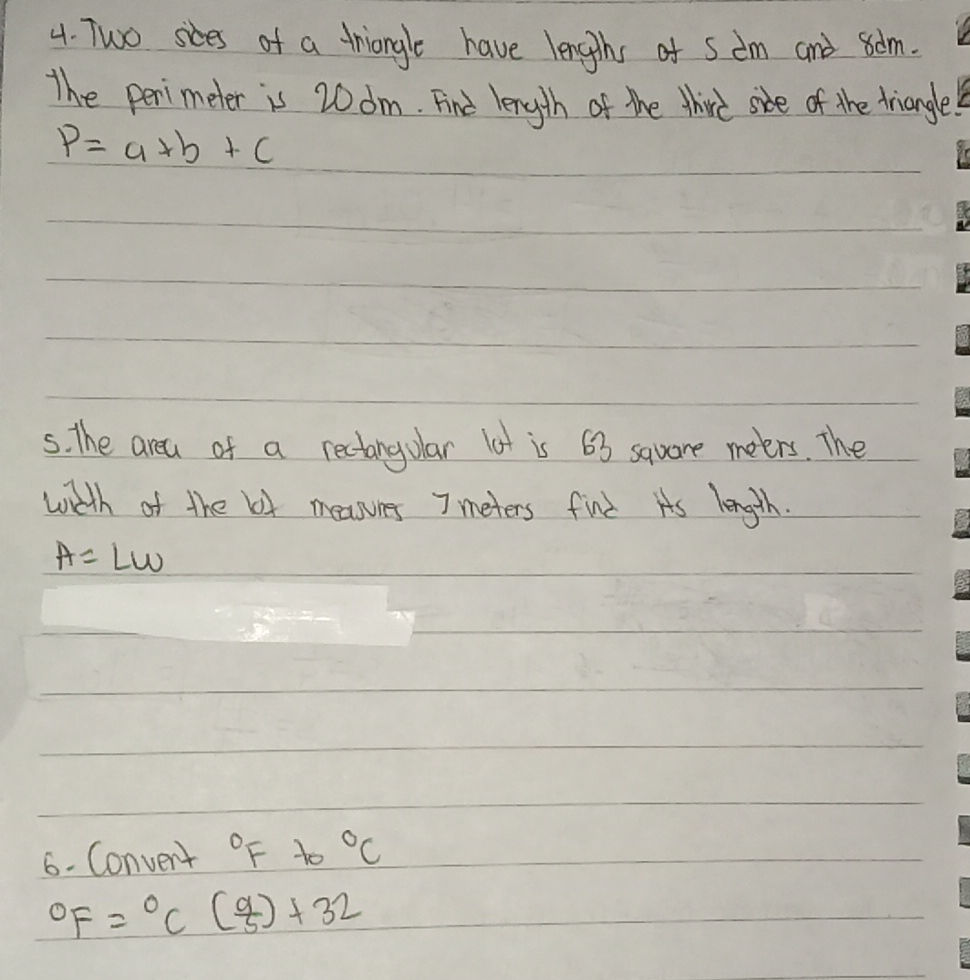 4. Two sides of a triangle have lengths of 5 dm and 8dm.
The perimeter is 20 dm. Find length of the third side of the triangle.
P = a + b + c
5. The area of a rectangular lot is 63 square meters. The
width of the lot measures 7 meters find its length.
A = LW
6. Convert °F to °C
°F = °C (9/5) + 32